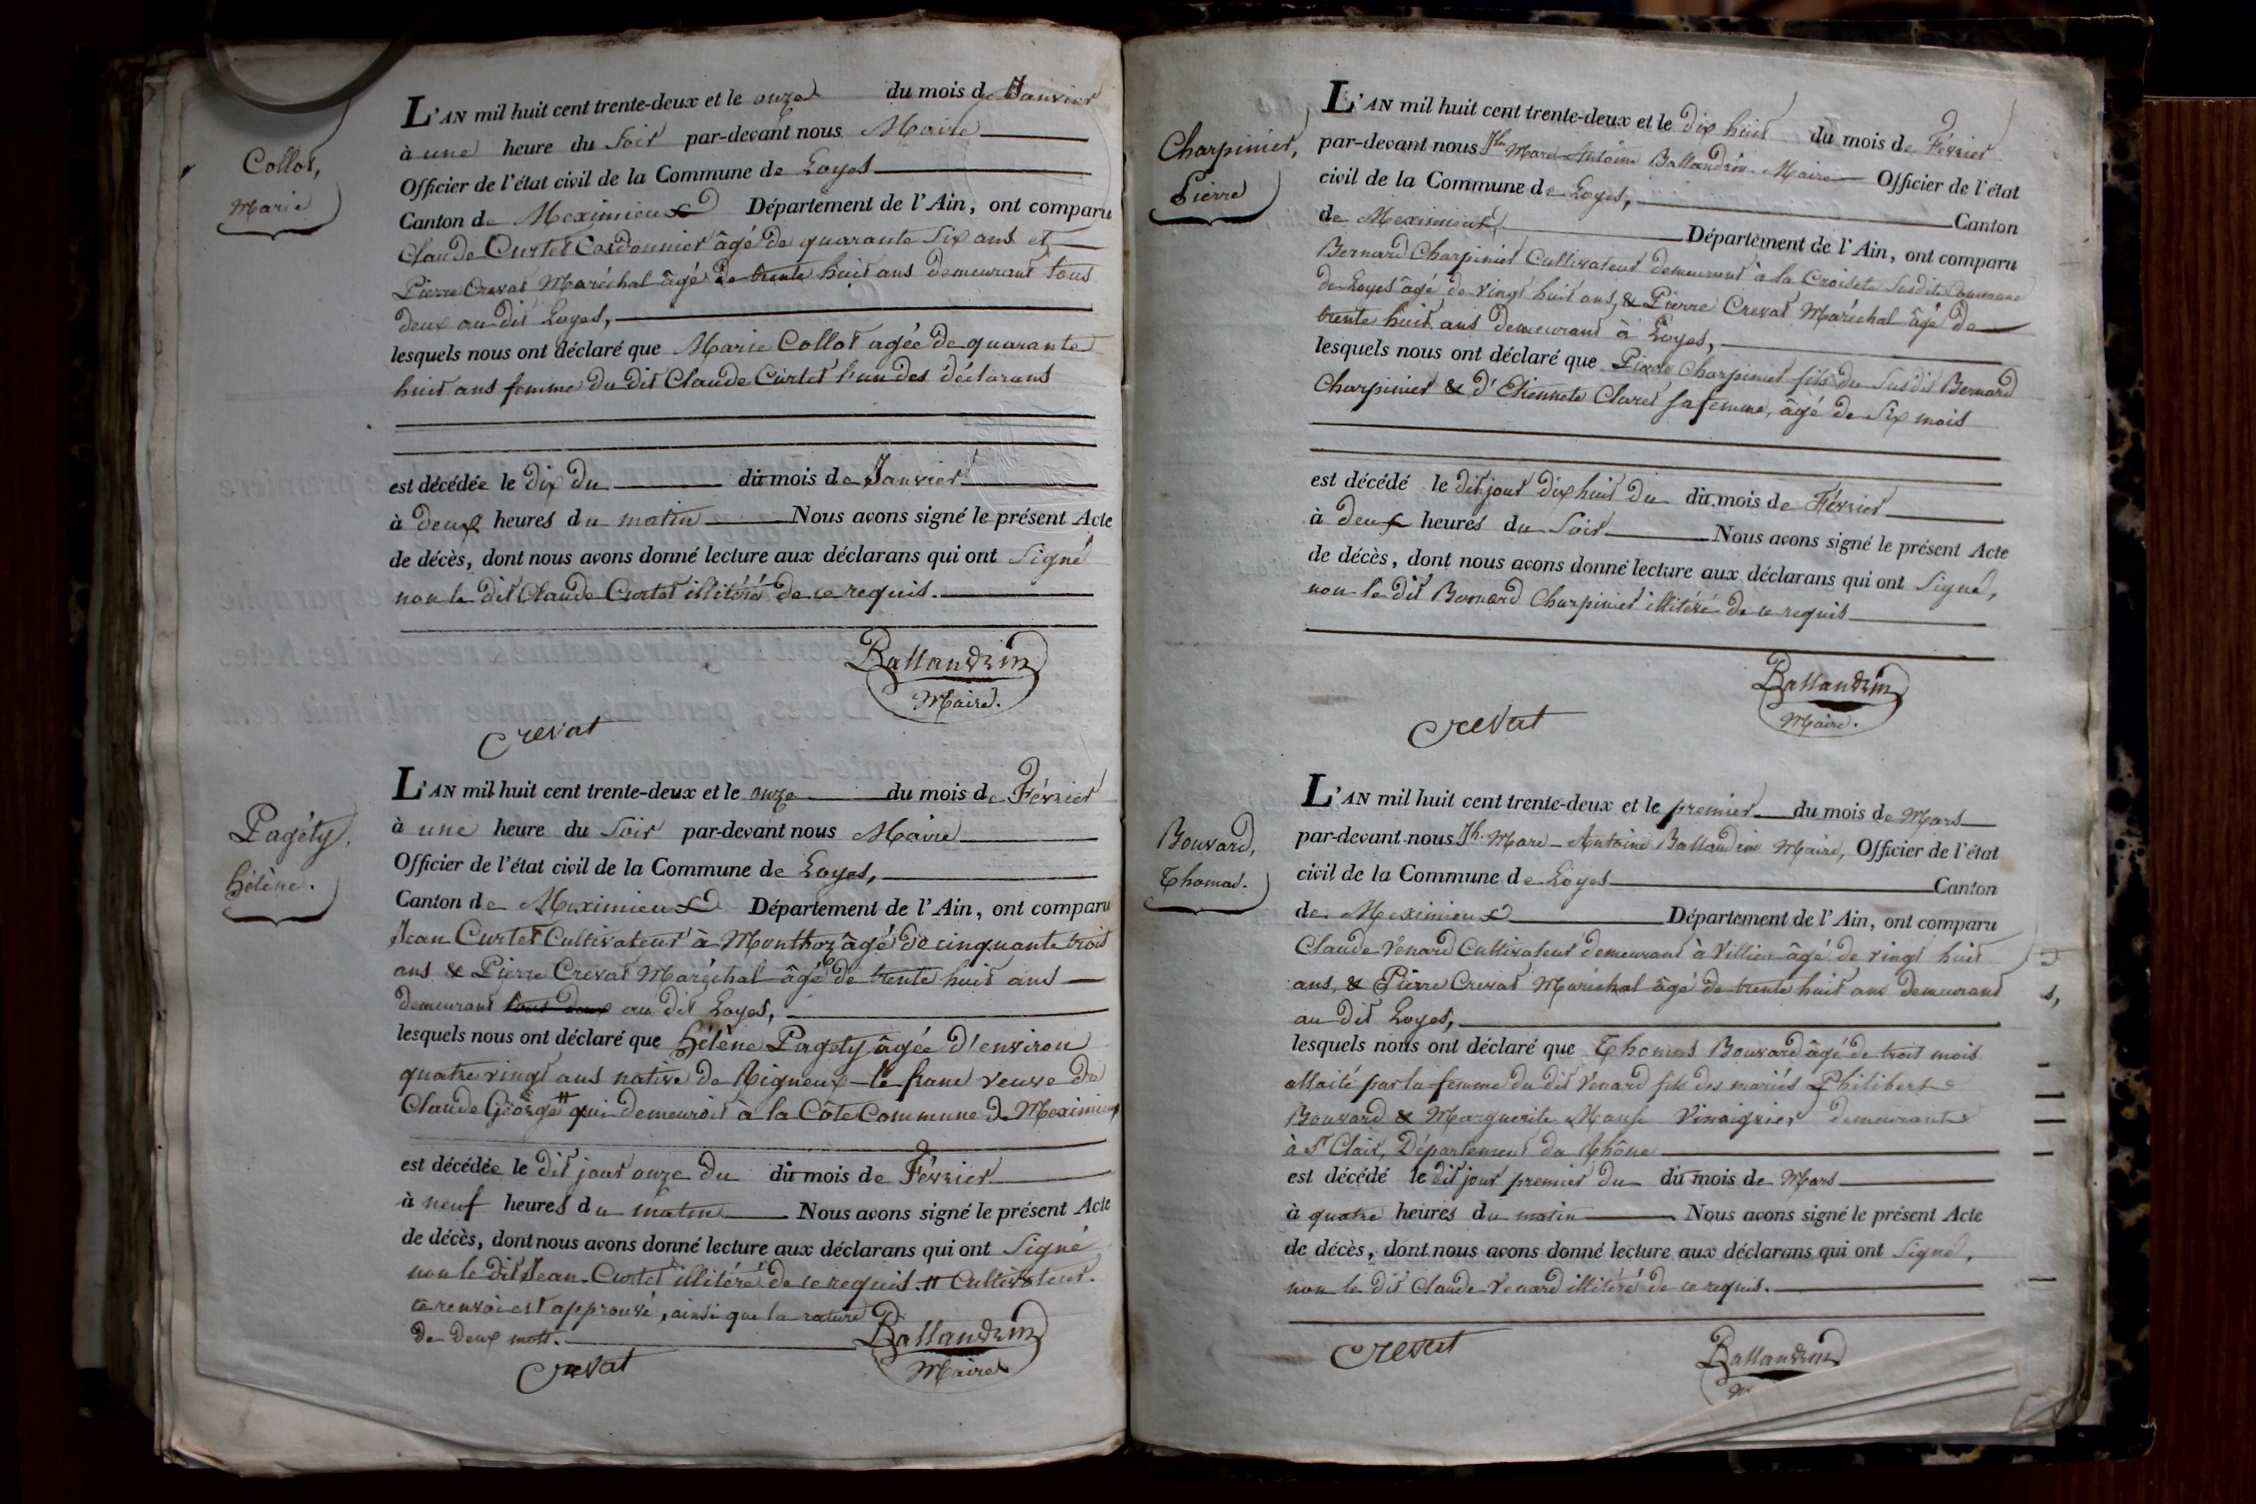 Collot,
Marie
L'AN mil huit cent trente-deux et le onze du mois de Janvier
à une heure du Soir par-devant nous Maire
Officier de l'état civil de la Commune de Loyes
Canton de Meximieux Département de l'Ain, ont comparu
Claude Curtet Cordonnier âgé de quarante Six ans et
Pierre Crevat Maréchal âgé de trente huit ans demeurant tous
deux au dit Loyes,
lesquels nous ont déclaré que Marie Collot agée de quarante
huit ans femme du dit Claude Curtet l'un des déclarans
est décédée le dix du du mois de Janvier
à deux heures du matin Nous avons signé le présent Acte
de décès, dont nous avons donné lecture aux déclarans qui ont Signé
non le dit Claude Curtet illitéré de ce requis.
Ballandrin
Maire.
Crevat
Pagéty,
hélène.
L'AN mil huit cent trente-deux et le onze du mois de Février
à une heure du Soir par-devant nous Maire
Officier de l'état civil de la Commune de Loyes,
Canton de Meximieux Département de l'Ain, ont comparu
Jean Curtet Cultivateur à Monthoz âgé de cinquante trois
ans & Pierre Crevat Maréchal âgé de trente huit ans
demeurant tous deux au dit Loyes,
lesquels nous ont déclaré que hélène Pagéty âgée d'environ
quatre vingt ans native de Rigneux-le franc veuve de
Claude George # qui demeuroit à la Côte Commune de Meximieux
est décédée le dit jour onze du du mois de Février
à neuf heures du matin Nous avons signé le présent Acte
de décès, dont nous avons donné lecture aux déclarans qui ont Signé
non le dit Jean Curtet illitéré de ce requis. # Cultivateur.
ce renvoi est approuvé, ainsi que la rature
de deux mots.
Ballandrin
Maire
Crevat
Charpinier,
Pierre
L'AN mil huit cent trente-deux et le dix huit du mois de Février
par-devant nous Jh Marc Antoine Ballandrin Maire Officier de l'état
civil de la Commune de Loyes, Canton
de Meximieux, Département de l'Ain, ont comparu
Bernard Charpinier Cultivateur demeurant à la Croisete Susdite Commune
de Loyes âgé de vingt huit ans, & Pierre Crevat Maréchal âgé de
trente huit ans demeurant à Loyes,
lesquels nous ont déclaré que Pierre Charpinier fils du Susdit Bernard
Charpinier & d'Etiennete Claret sa femme, âgé de Six mois
est décédé le dit jour dix huit du du mois de Février
à deux heures du Soir Nous avons signé le présent Acte
de décès, dont nous avons donné lecture aux déclarans qui ont Signé,
non le dit Bernard Charpinier illitéré de ce requis
Ballandrin
Maire.
Crevat
Bouvard,
Thomas.
L'AN mil huit cent trente-deux et le premier du mois de Mars
par-devant nous Jh. Marc-Antoine Ballandrin Maire, Officier de l'état
civil de la Commune de Loyes Canton
de Meximieux Département de l'Ain, ont comparu
Claude Venard Cultivateur demeurant à Villieu âgé de vingt huit
ans, & Pierre Crevat Maréchal âgé de trente huit ans demeurant
au dit Loyes,
lesquels nous ont déclaré que Thomas Bouvard âgé de trois mois
allaité par la femme du dit Venard fils des mariés Philibert
Bouvard & Marguerite Vinaigrier, demeurants
à St Clair, Département du Rhône
est décédé le dit jour premier du du mois de Mars
à quatre heures du matin Nous avons signé le présent Acte
de décès, dont nous avons donné lecture aux déclarans qui ont Signé,
non le dit Claude Venard illitéré de ce requis.
Crevat
Ballandrin